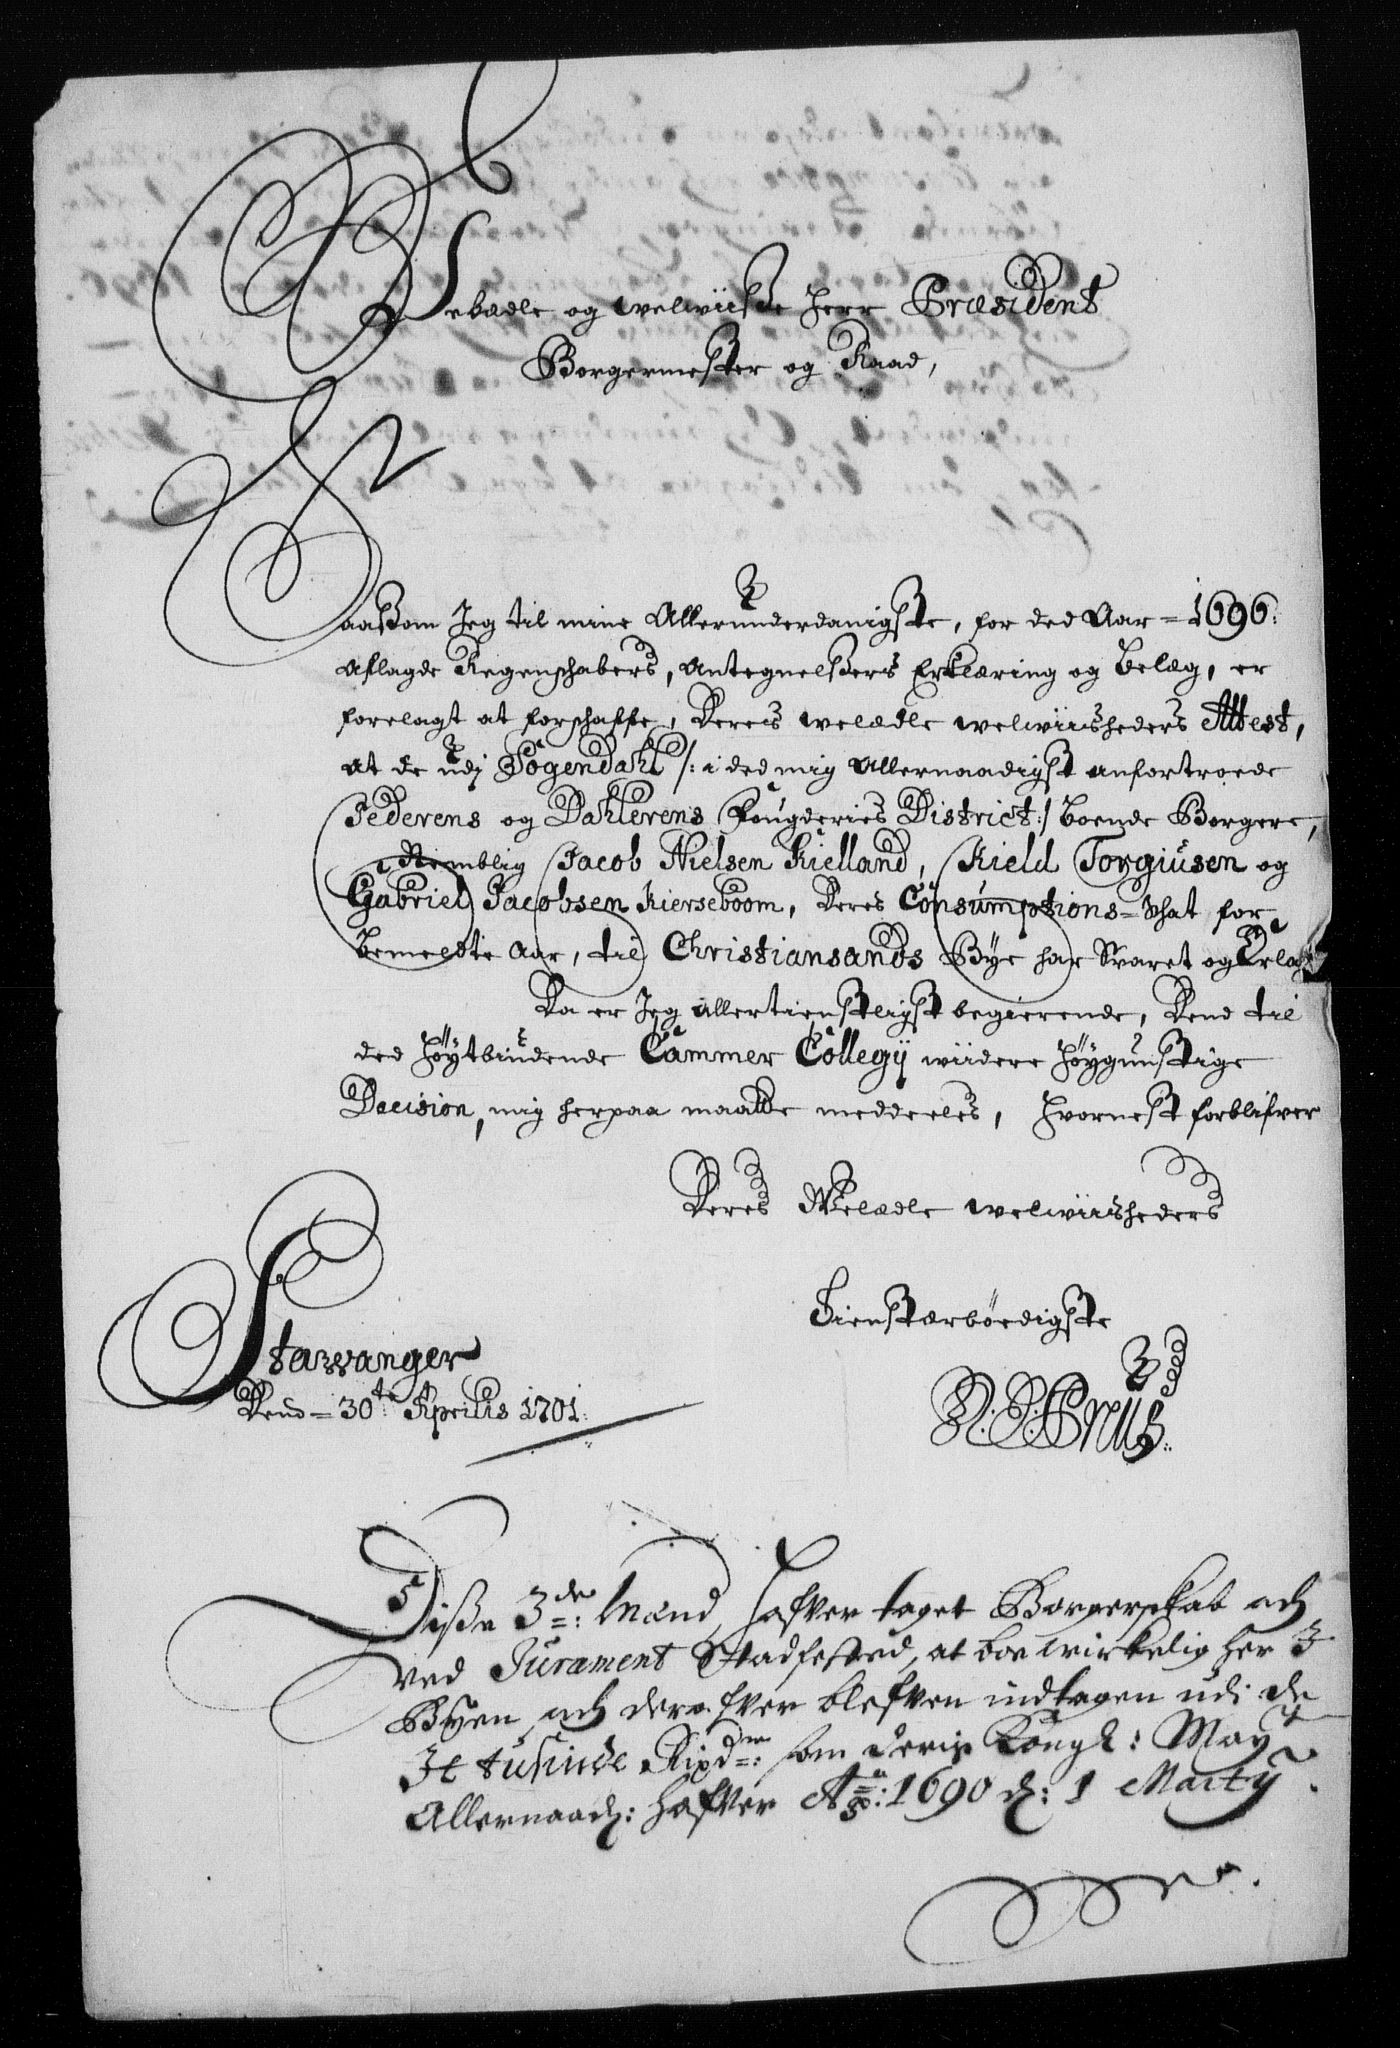 Welædle og welwiisse Herr Præsident
Borgermester og Raad,
Saassom Jeg til mine Allerunderdanigste, for ded Aar = 1696:
aflagde Regenschabers, Antegnelssers Erklæring og belæg, er
forelagt at forschaffe, Deres welædle welwiisheders Attest,
at de udj Sogendahl /: i ded mig allernaadigst anfortroede
Jederens og Dahlerens Fougderies District :/ boende Borgere,
Nemblig Jacob Nielsen Kielland, Kield Torgiusen og
Gabriel Jacobsen Kierseboom, Deres Consumptions = Schat for
bemeldte Aar, til Christiansands Bye har Svaret og Erlagt
Da er Jeg allertienstligst begierende, Dend til
ded Høytbiudende Cammer Collegij wiidere Høygunstige
Decision, mig herpaa maatte meddeeles, Hvornest forblifver
Deres Welædle welwiisheders
Tienstærbødigste
Stavvanger
Dend = 30te Aprilis 1701:
Disse 3de: Mænd, hafver taget Borgerskab och
ved Jurament Stadfested, at boe wirkelig her J
Byen, och derofver blefven indtagen udi de
It tusinde Rixdr: som deris Kongl: Mayt
Allernaadh: hafver Ao: 1690 d: 1 Martij